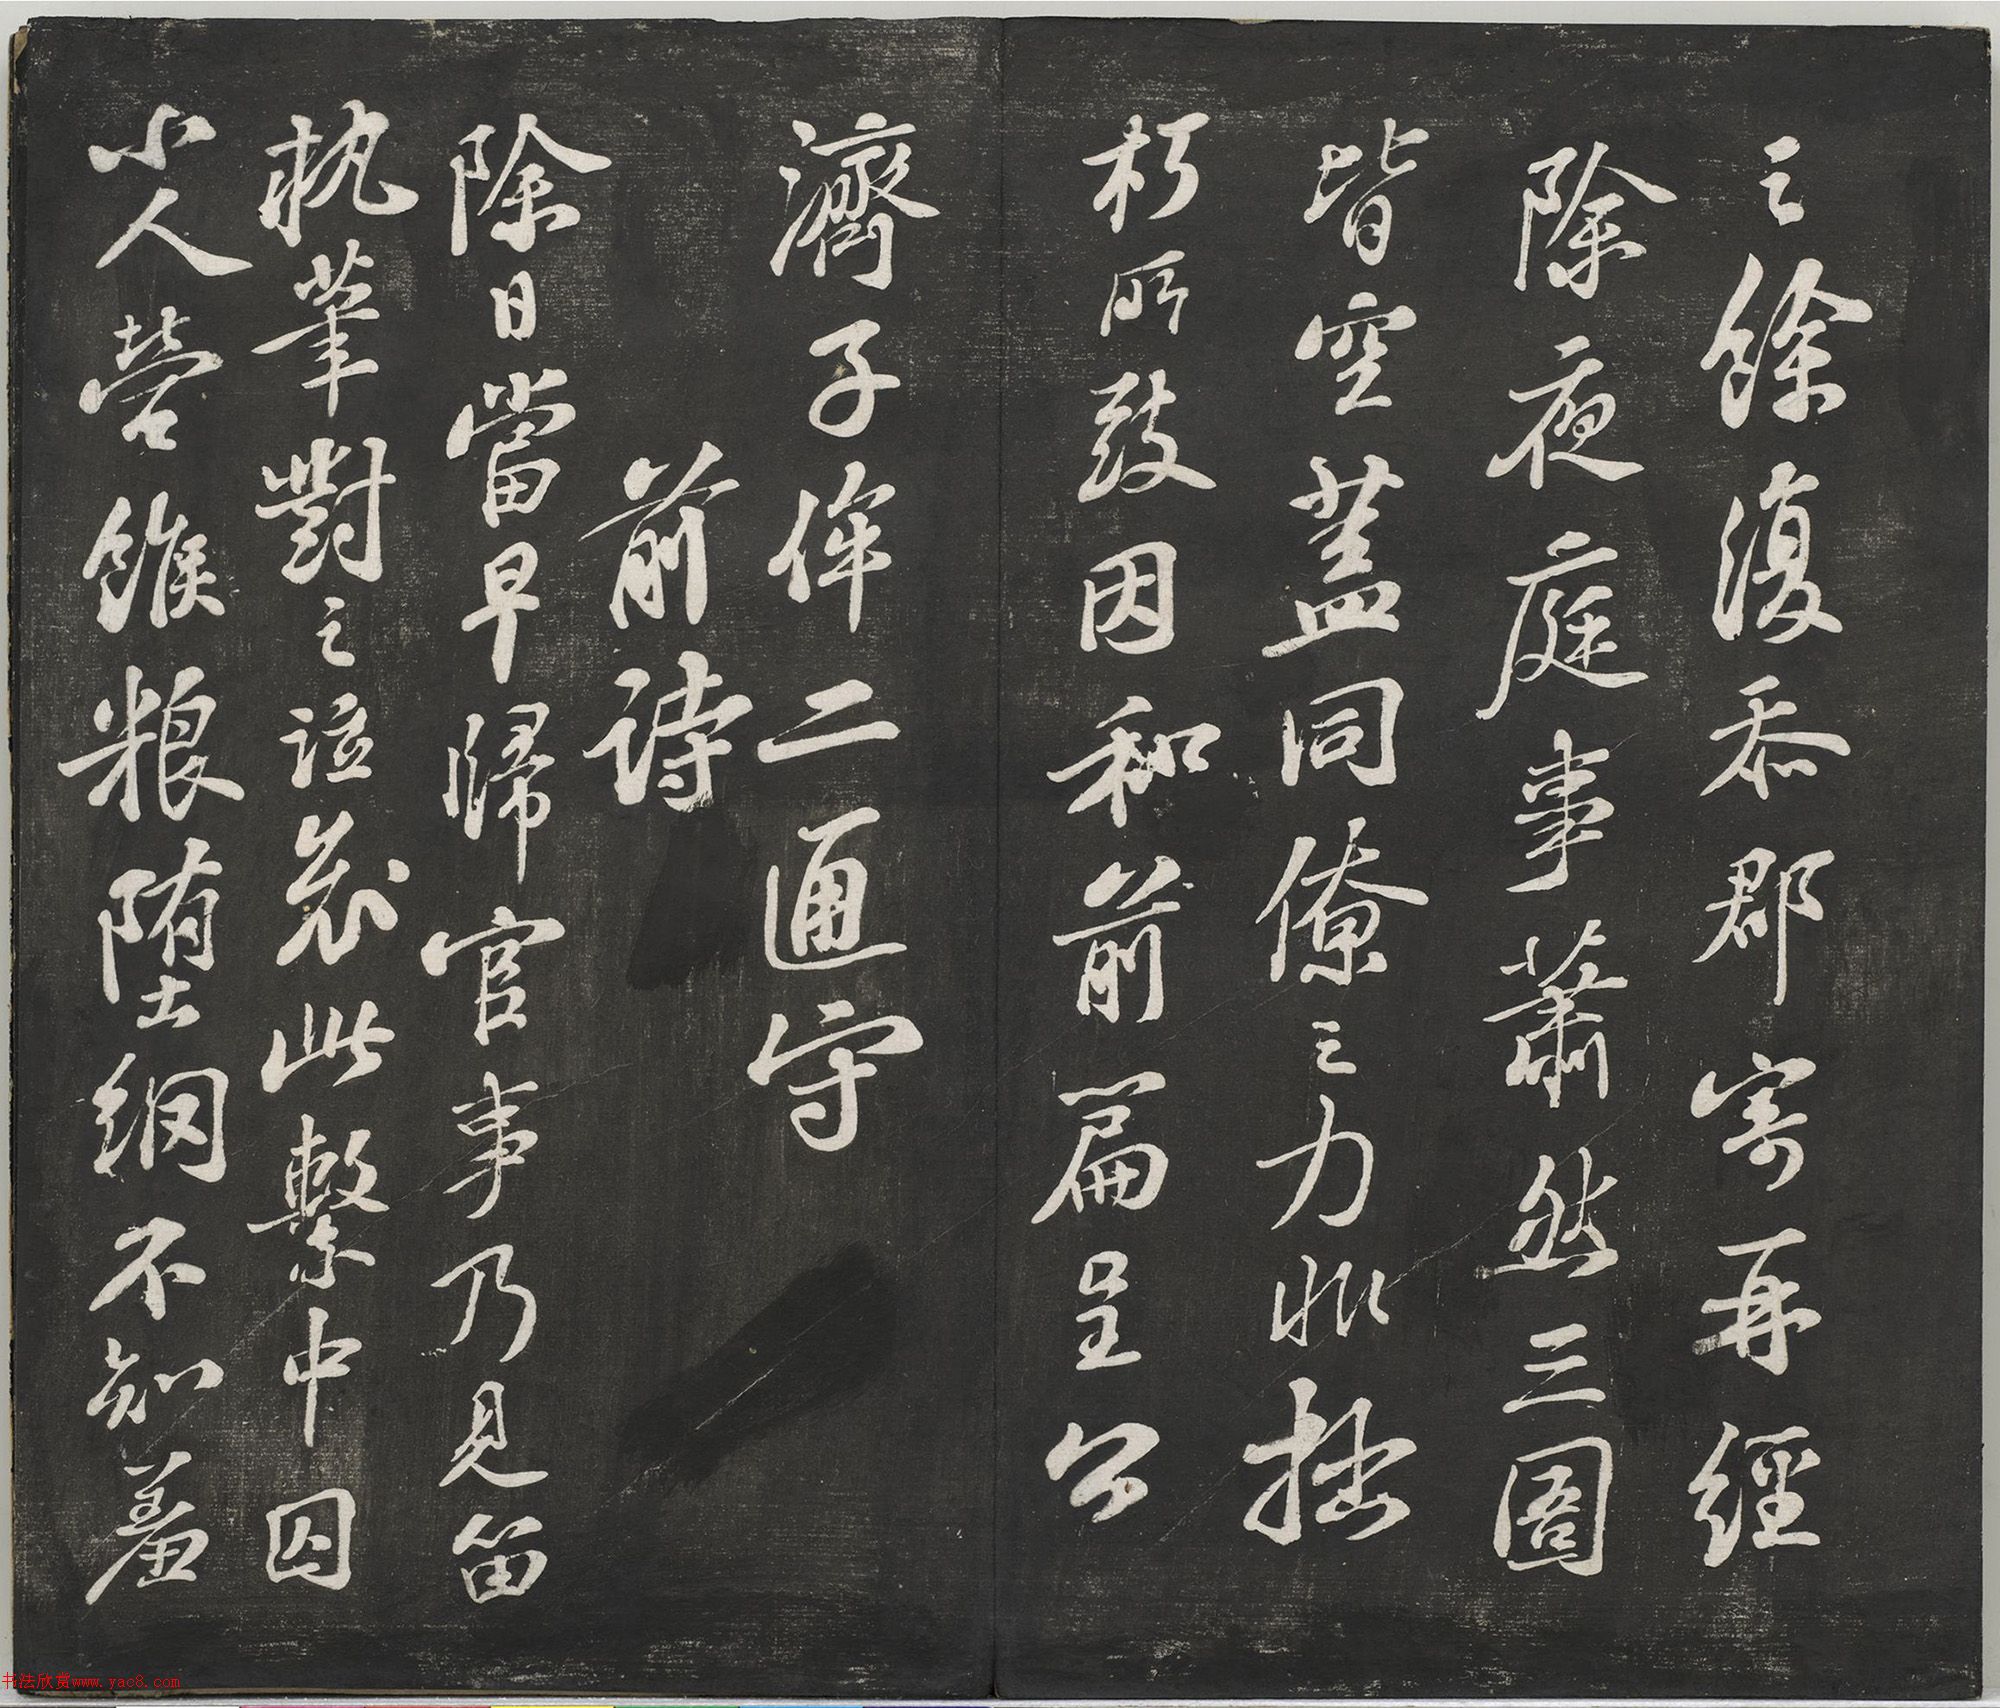 之餘復忝郡寄再經
除夜庭事蕭然三圄
皆空蓋同僚之力非拙
朽所致因和前篇呈公
濟子侔二通守
前詩
除日當早歸官事乃見留
執筆對之泣哀此繫中囚
小人營餱粮墮網不知羞
书法欣赏www.yac8.com